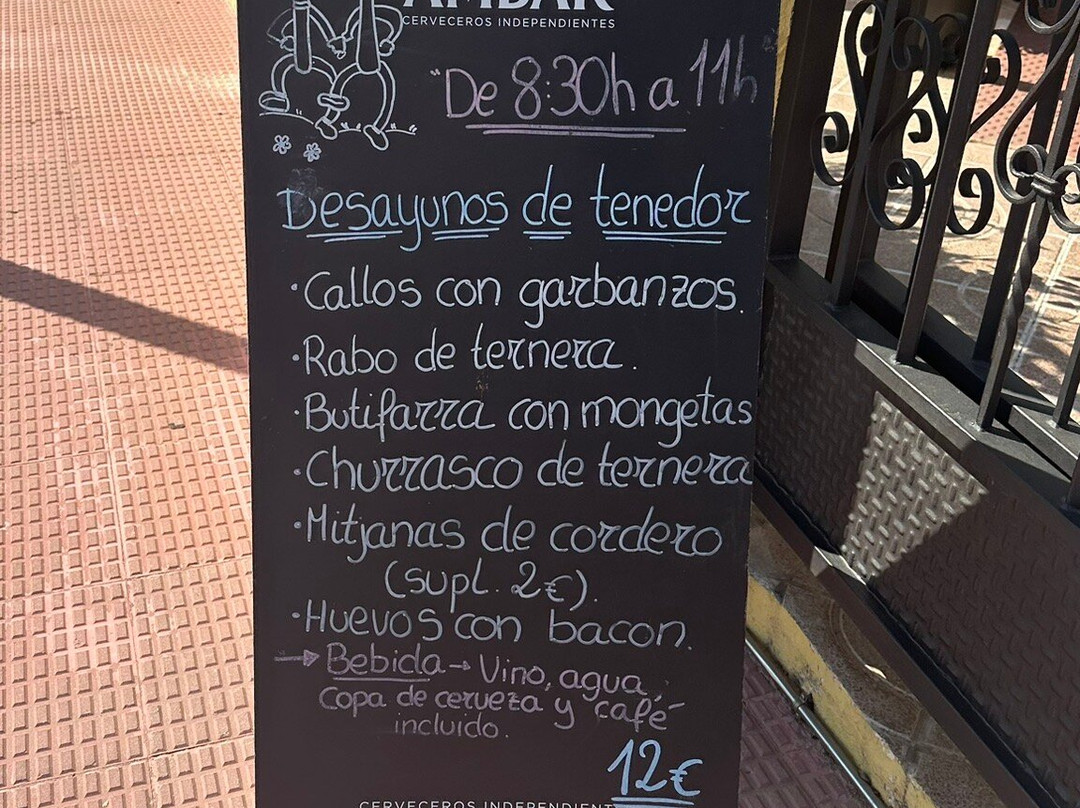 AMBAR
CERVECEROS INDEPENDIENTES
"De 8:30h a 11h"
Desayunos de tenedor
·Callos con garbanzos.
·Rabo de ternera.
·Butifarra con mongetas
·Churrasco de ternera
·Mitjanas de cordero
(supl. 2€).
·Huevos con bacon.
→Bebida→Vino, agua,
Copa de cerveza y café
incluido.
12€
CERVECEROS INDEPENDIENT